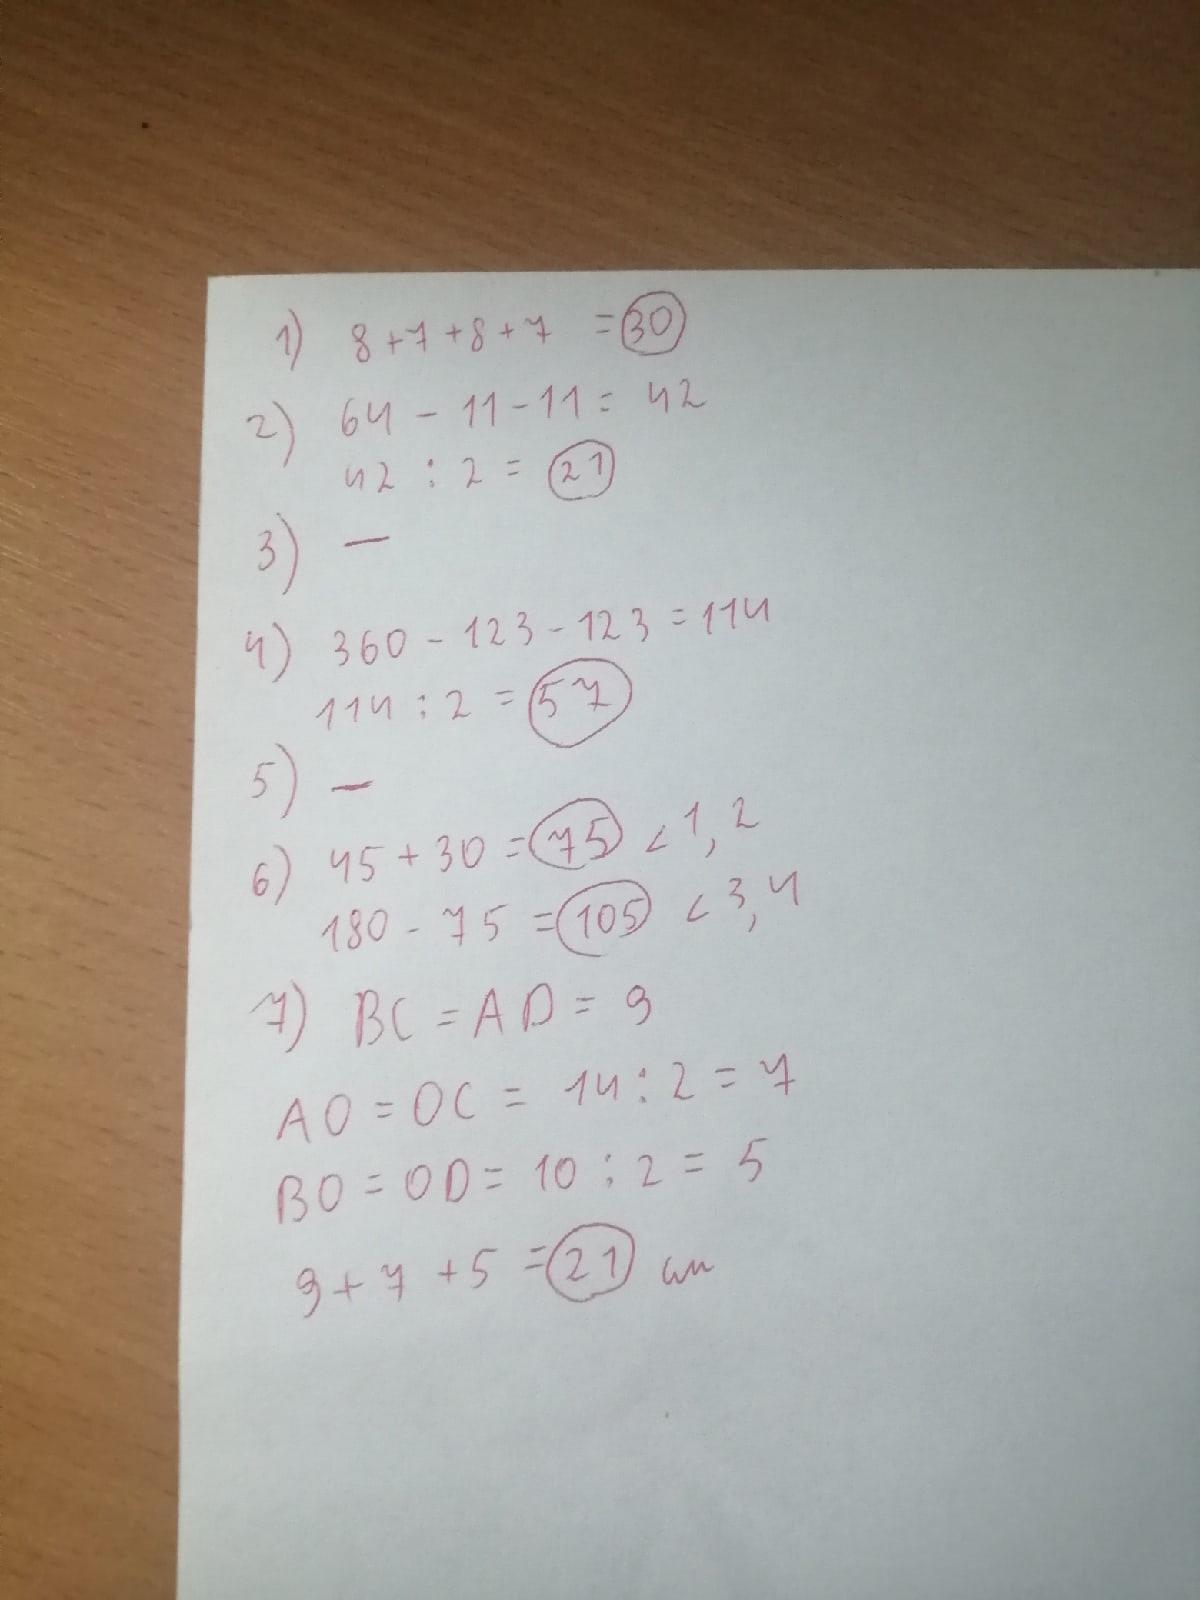 1) 8+7+8+7 = 30
2) 64 - 11 - 11 = 42
42 : 2 = 21
3) —
4) 360 - 123 - 123 = 114
114 : 2 = 57
5) —
6) 45 + 30 = 75 < 1, 2
180 - 75 = 105 < 3, 4
7) BC = AD = 9
AO = OC = 14 : 2 = 7
BO = OD = 10 : 2 = 5
9 + 7 + 5 = 21 см